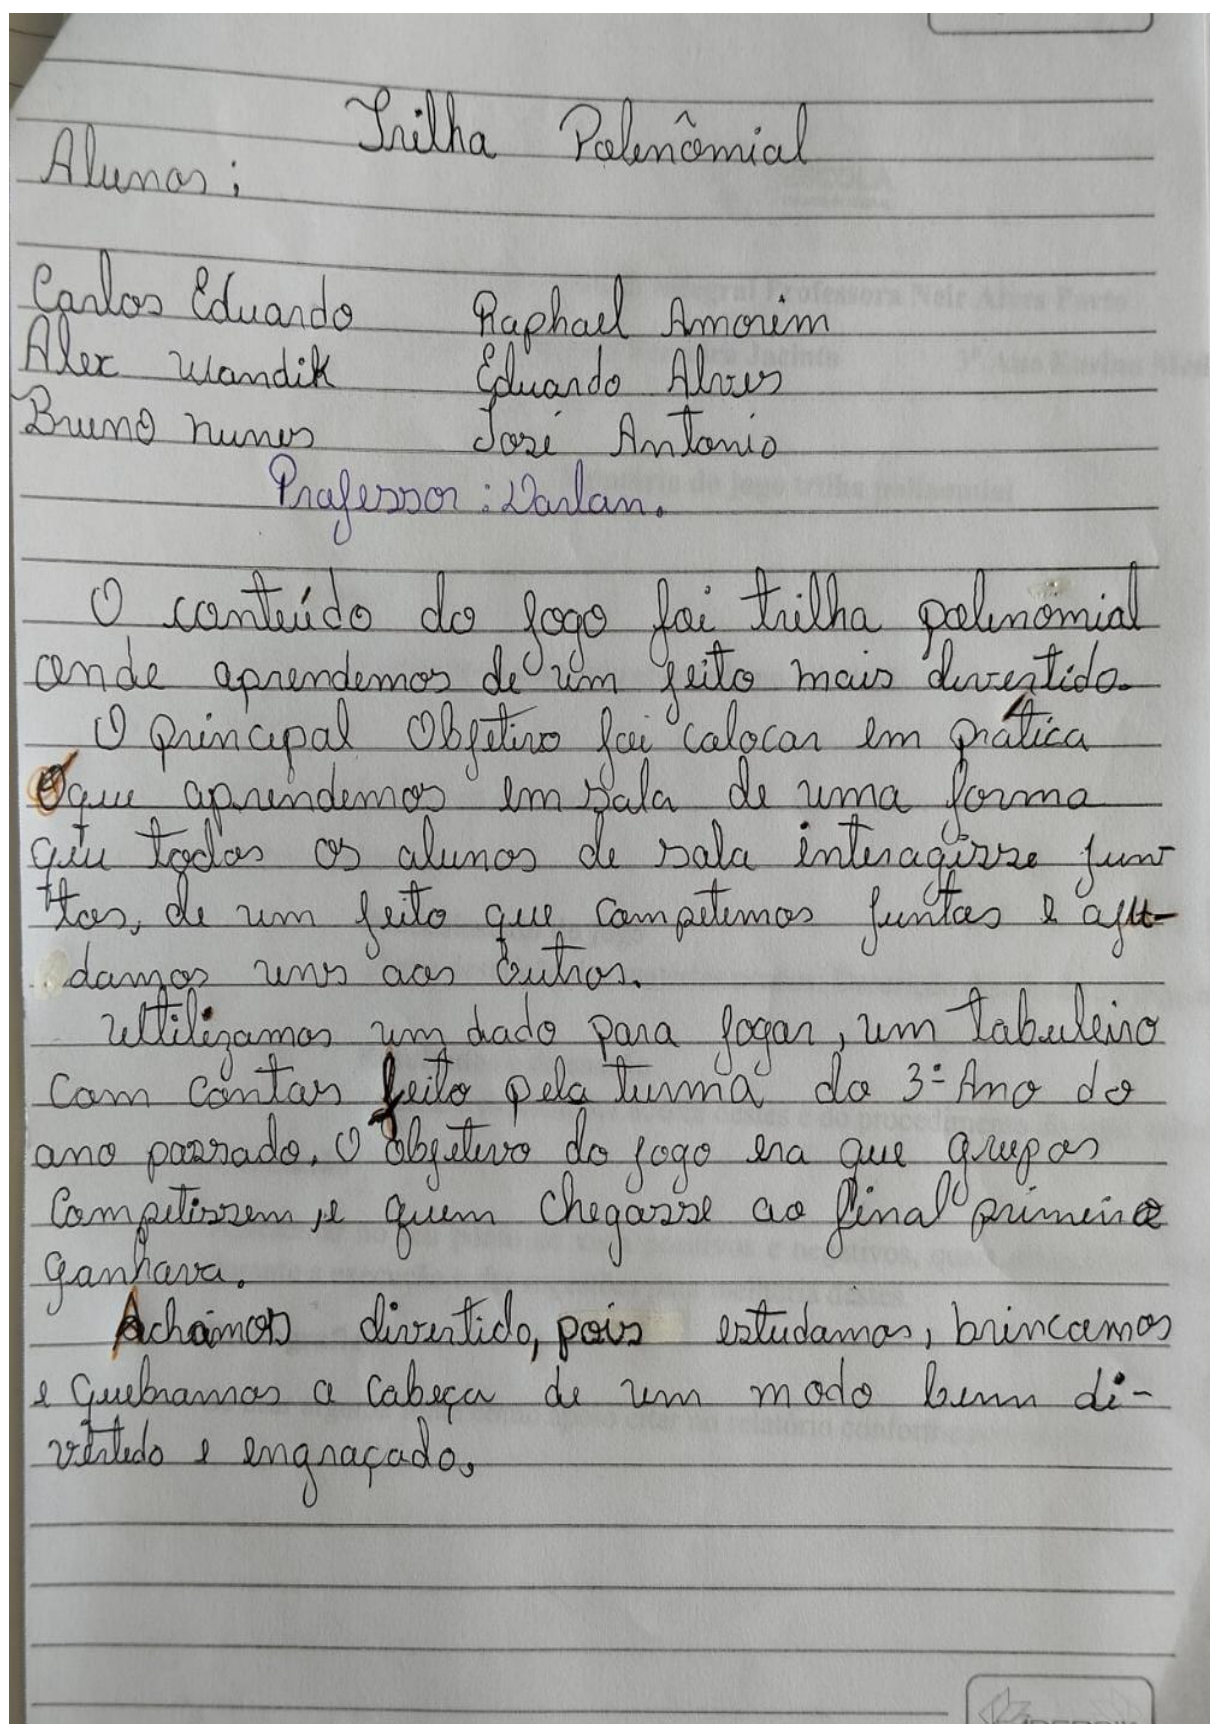 Trilha Polinômial
Alunos:
Carlos Eduardo Raphael Amorim
Alex Wandik Eduardo Alves
Bruno nunes José Antonio
Professor: Darlan.
O conteúdo do jogo foi trilha polinomial
onde aprendemos de um jeito mais divertido.
O principal Objetivo foi colocar em prática
O que aprendemos em sala de uma forma
que todos os alunos de sala interagisse jun
tos, de um jeito que competimos juntos e aju-
damos uns aos outros.
Utilizamos um dado para jogar, um tabuleiro
com contas feito pela turma do 3º Ano do
ano passado. O objetivo do jogo era que grupos
Competissem, e quem chegasse ao final primeiro
ganhava.
Achamos divertido, pois estudamos, brincamos
e Quebramos a cabeça de um modo bem di-
vertido e engraçado.